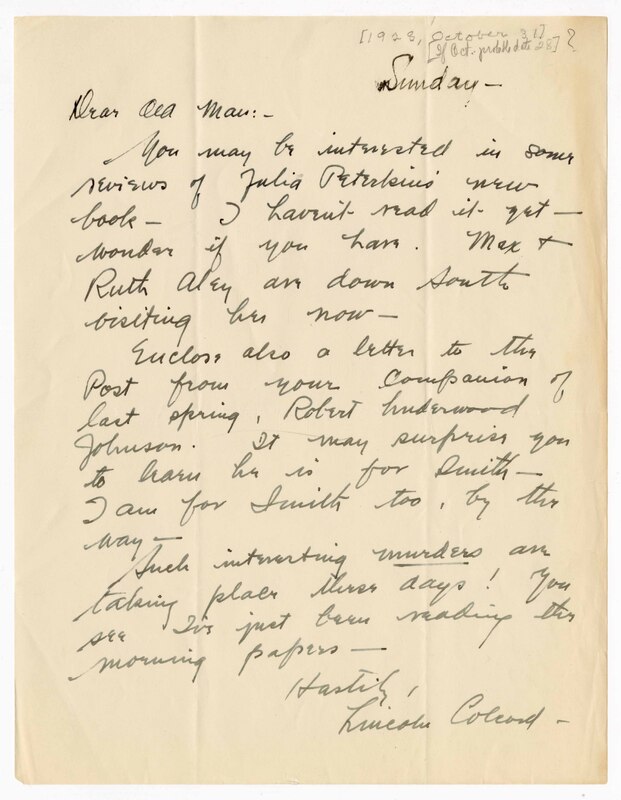 [1928, October 31]
[If Oct. probable date 28] ?
Sunday —
Dear Old Man: -
You may be interested in some
reviews of Julia Peterkin's new
book — I haven't read it yet —
wonder if you have. Max +
Ruth Aley are down South
visiting her now —
Enclose also a letter to the
Post from your companion of
last spring, Robert Underwood
Johnson. It may surprise you
to learn he is for Smith —
I am for Smith too, by the
way —
Such interesting murders are
taking place these days! You
see I've just been reading the
morning papers —
Hastily,
Lincoln Colcord -